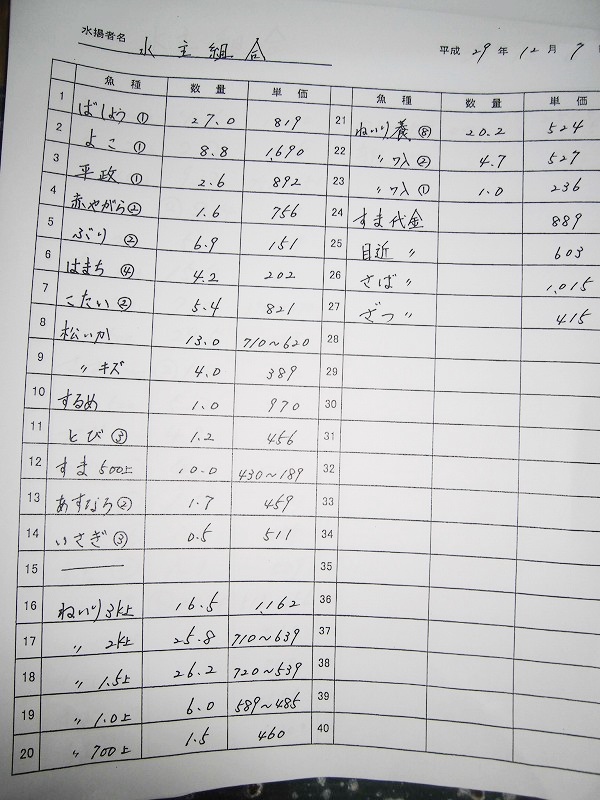 水揚者名 水主組合 平成 29年 12月 7
魚種 数量 単価
1 ばしょう① 27.0 819
2 よこ① 8.8 1,690
3 平政① 2.6 892
4 赤やがら② 1.6 756
5 ぶり② 6.9 151
6 はまち④ 4.2 202
7 こたい② 5.4 821
8 松いか 13.0 710~620
9 〃キズ 4.0 389
10 するめ 1.0 970
11 とび③ 1.2 456
12 すま500上 10.0 430~189
13 あすなろ② 1.7 459
14 いさぎ③ 0.5 511
15 ―
16 ねいり3k上 16.5 1,162
17 〃 2k上 25.8 710~639
18 〃 1.5上 26.2 720~539
19 〃 1.0上 6.0 589~485
20 〃 700上 1.5 460
魚種 数量 単価
21 ねいり養⑧ 20.2 524
22 〃 ワ入② 4.7 527
23 〃 ワ入① 1.0 236
24 すま代金 889
25 目近 〃 603
26 さば 〃 1,015
27 ざつ 〃 415
28
29
30
31
32
33
34
35
36
37
38
39
40